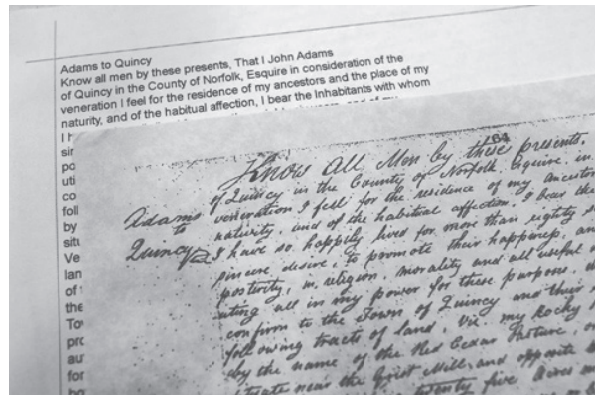 Adams to Quincy
Know all men by these presents, That I John Adams
of Quincy in the County of Norfolk, Esquire in consideration of the
veneration I feel for the residence of my ancestors and the place of my
naturity, and of the habitual affection, I bear the Inhabitants with whom
I h
sir
po
uti
co
foll
by
situ
Ve
lan
of
the
To
pro
aur
for
164
Know All Men by these presents,
of Quincy in the County of Norfolk Esquire, in
veneration I fell for the residence of my ancestor
nativity, and of the habitual affection, I bear the
I have so happily lived for more than eighty
sincere desire, to promote their happiness, an
postirity, in religion, morality and all useful
uting all in my power for these purpose, 
confirm to the Town of Quincy and their
following tracts of land, Viz. my Rocky
by the name of the Red Cedar Pasture,
situate near the Grist Mill, and opposite
twenty five Acres
Adams
to
Quincy